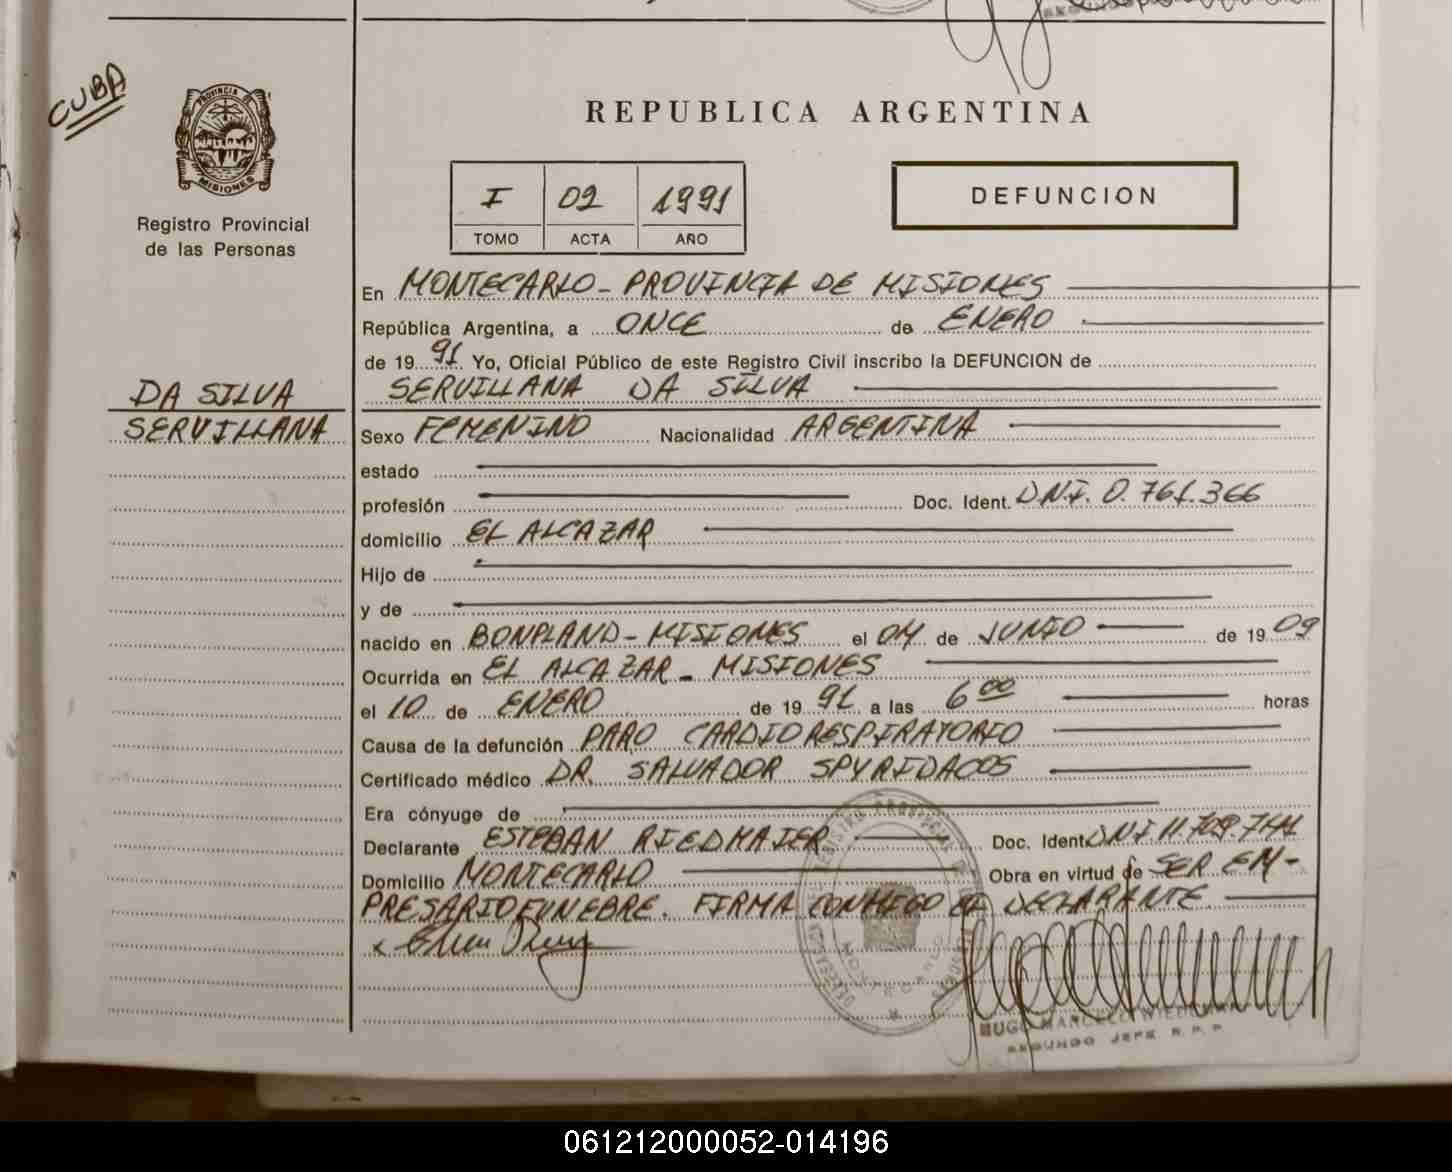 CUBA
PROVINCIA DE
MISIONES
Registro Provincial
de las Personas
REPUBLICA ARGENTINA
I 02 1991
TOMO ACTA AÑO
DEFUNCION
En MONTECARLO - PROVINCIA DE MISIONES
República Argentina, a ONCE de ENERO
de 1991 Yo, Oficial Público de este Registro Civil inscribo la DEFUNCION de
SERVILLANA DA SILVA
DA SILVA
SERVILLANA
Sexo FEMENINO Nacionalidad ARGENTINA
estado
profesión Doc. Ident. D.N.I. 0.761.366
domicilio EL ALCAZAR
Hijo de
y de
nacido en BONPLAND - MISIONES el 04 de JUNIO de 1909
Ocurrida en EL ALCAZAR - MISIONES
el 10 de ENERO de 1991 a las 6 00 horas
Causa de la defunción PARO CARDIORESPIRATORIO
Certificado médico DR. SALVADOR SPYRIDACOS
Era cónyuge de
Declarante ESTEBAN RIEDMAIER Doc. Ident. DNI 11.
Domicilio MONTECARLO Obra en virtud de SER EM-
PRESARIO FUNEBRE. FIRMA CONMIGO EL DECLARANTE
REGISTRO PROVINCIAL DE LAS
MONTECARLO
HUGO MARCELO
SEGUNDO JEFE R.P.P
061212000052-014196